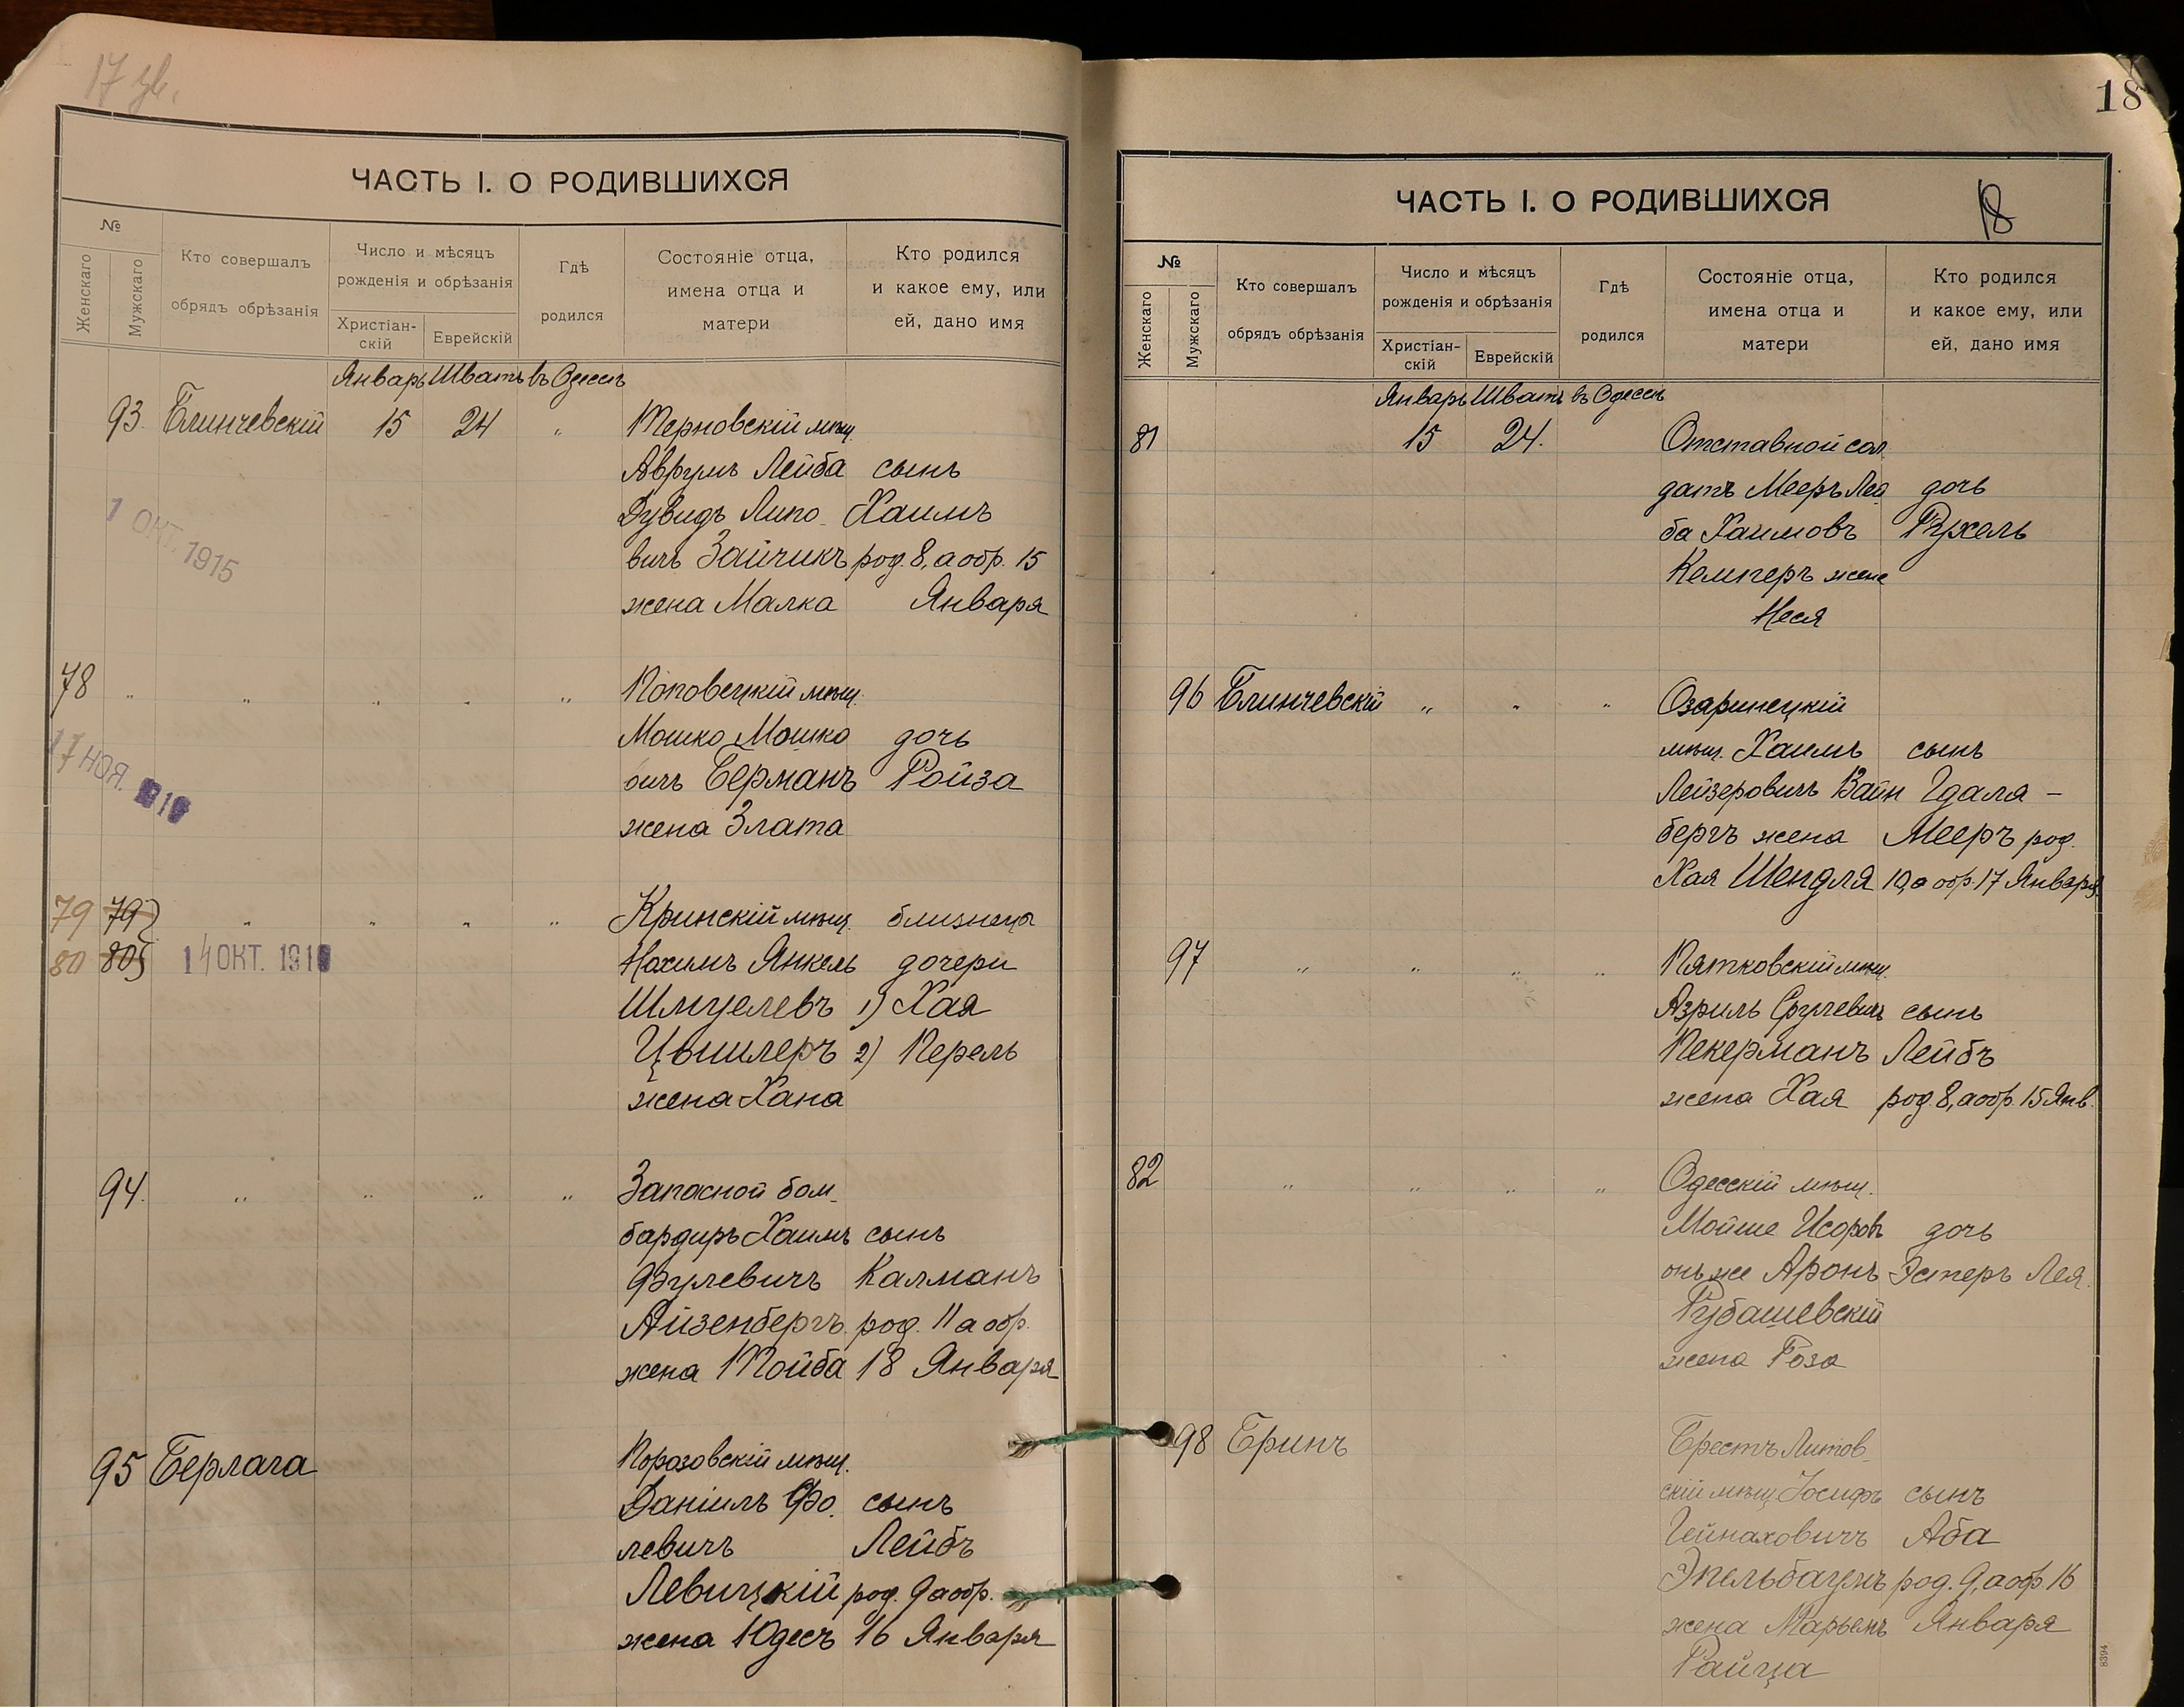 17 зв.
ЧАСТЬ I. О РОДИВШИХСЯ
№
Женскаго
Мужскаго
Кто совершалъ
обрядъ обрѣзанія
Число и мѣсяцъ
рожденія и обрѣзанія
Христіан-
скій
Еврейскій
Гдѣ
родился
Состояніе отца,
имена отца и
матери
Кто родился
и какое ему, или
ей, дано имя
Январь Шватъ въ Одессѣ
93. Блинчевскій 15 24 " Терновскій мѣщ.
Аврумъ Лейба сынъ
Дувидъ Липо- Хаимъ
вичъ Зайчикъ род. 8, а обр. 15
жена Малка Января
1 ОКТ. 1915
78 " " " " " Поповецкій мѣщ.
Мошко Мошко дочь
вичъ Берманъ Ройза
жена Злата
17 НОЯ.
79 79 " " " " Кринскій мѣщ. близнецы
80 80 14 ОКТ. Нахимъ Янкель дочери
Шмуелевъ 1) Хая
2) Перель
жена Хана
94. " " " " Запасной бом-
бардиръ Хаимъ сынъ
Фулевичъ Калманъ
Айзенбергъ род. 11 а обр.
жена Тойба 18 Января
95 Берлага Порозовскій мѣщ.
Даніилъ Фо- сынъ
левичъ Лейбъ
Левицкій род. 9 а обр.
жена Юдесъ 16 Января
18
ЧАСТЬ I. О РОДИВШИХСЯ
18
№
Женскаго
Мужскаго
Кто совершалъ
обрядъ обрѣзанія
Число и мѣсяцъ
рожденія и обрѣзанія
Христіан-
скій
Еврейскій
Гдѣ
родился
Состояніе отца,
имена отца и
матери
Кто родился
и какое ему, или
ей, дано имя
Январь Шватъ въ Одессѣ
81 15 24. Отставной сол
датъ Мееръ Лей дочь
ба Хаимовъ Рухель
Кемперъ жена
Неся
96 Блинчевскій " " " Озаринецкій
мѣщ. Хаимъ сынъ
Лейзеровичъ Вайн Гдаля -
бергъ жена Мееръ род.
Хая Шендля 10, а обр. 17 Января
97 " " " " Пятковскій мѣщ.
Азриль Срулевичъ сынъ
Пекерманъ Лейбъ
жена Хая род. 8, а обр. 15 Янв.
82 " " " " Одесскій мѣщ.
Мойше Исоровъ дочь
онъ же Аронъ Эстеръ Лея.
Рубашевскій
жена Роза
98 Бринъ Брестъ Литов-
скій мѣщ. Іосифъ сынъ
Гейнаховичъ Аба
Эпельбаумъ род. 9, а обр. 16
жена Марьемъ Января
Райца
8394